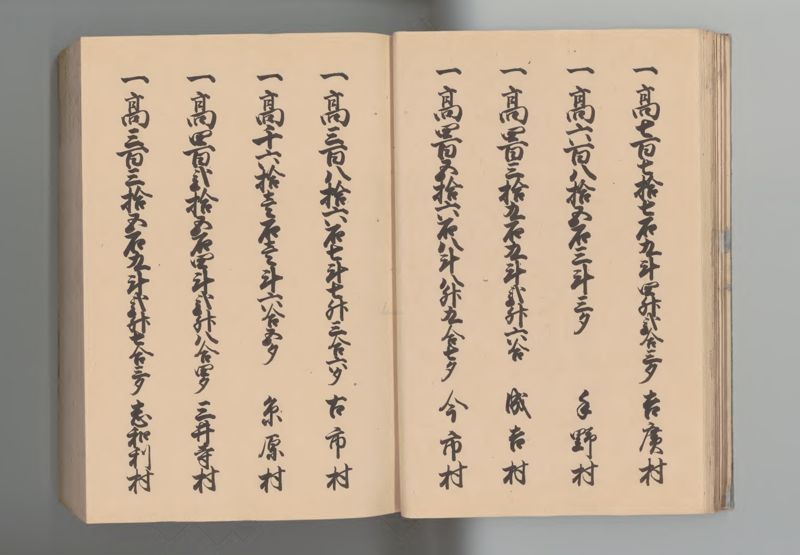 一高七百七拾七石九斗四升弐合三夕 吉廣村
一高六百八拾五石三斗三夕 手野村
一高四百三拾九石五斗弐升六合 成吉村
一高四百五拾六石八斗八升九合七夕 今市村
一高三百八拾六石七斗七升三合六夕 古市村
一高千六拾壱石壱斗六合五夕 糸原村
一高四百弐拾五石四斗弐升八合四夕 三井寺村
一高三百三拾五石九斗弐升七合三夕 志和利村